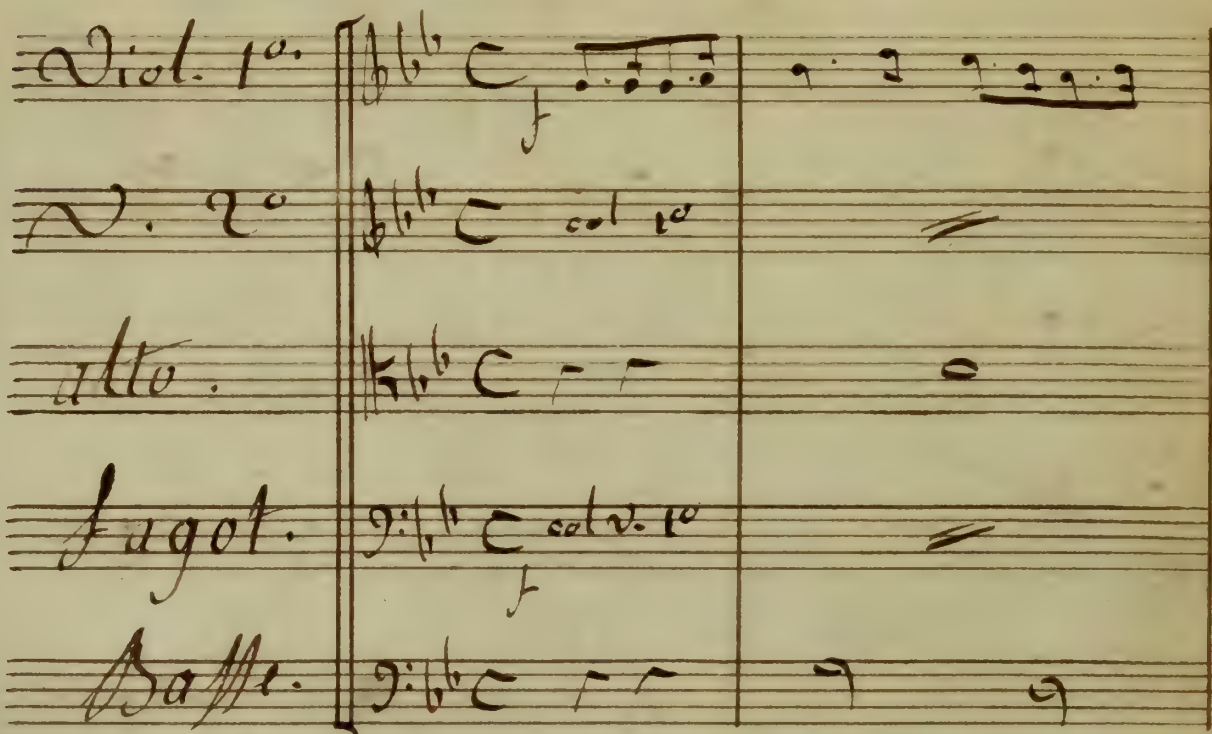 Viol. 1º. f
V. 2º col 1º
alto.
fagot. col v. 1º f
Basse.